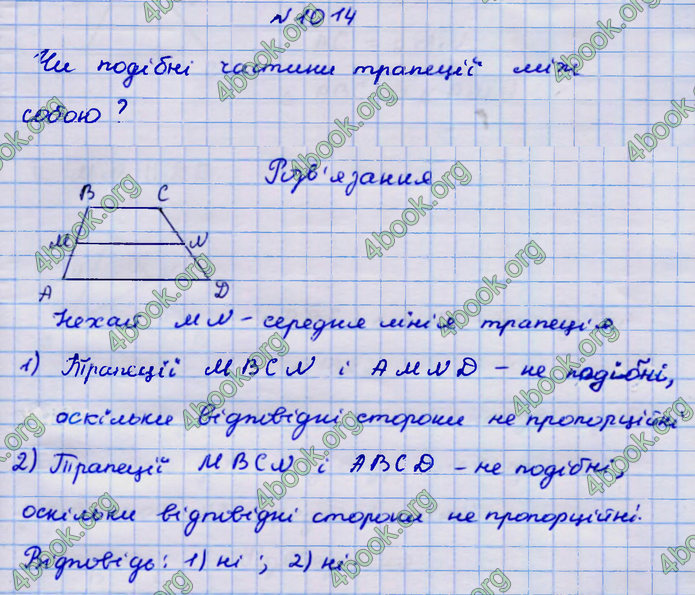 № 1014
Чи подібні частини трапеції між
собою?
Розв'язання
B C
M N
A D
Нехай MN - середня лінія трапеції
1) Трапеції MBCN і AMND - не подібні,
оскільки відповідні сторони не пропорційні
2) Трапеції MBCN і ABCD - не подібні,
оскільки відповідні сторони не пропорційні.
Відповідь: 1) ні; 2) ні.
4book.org